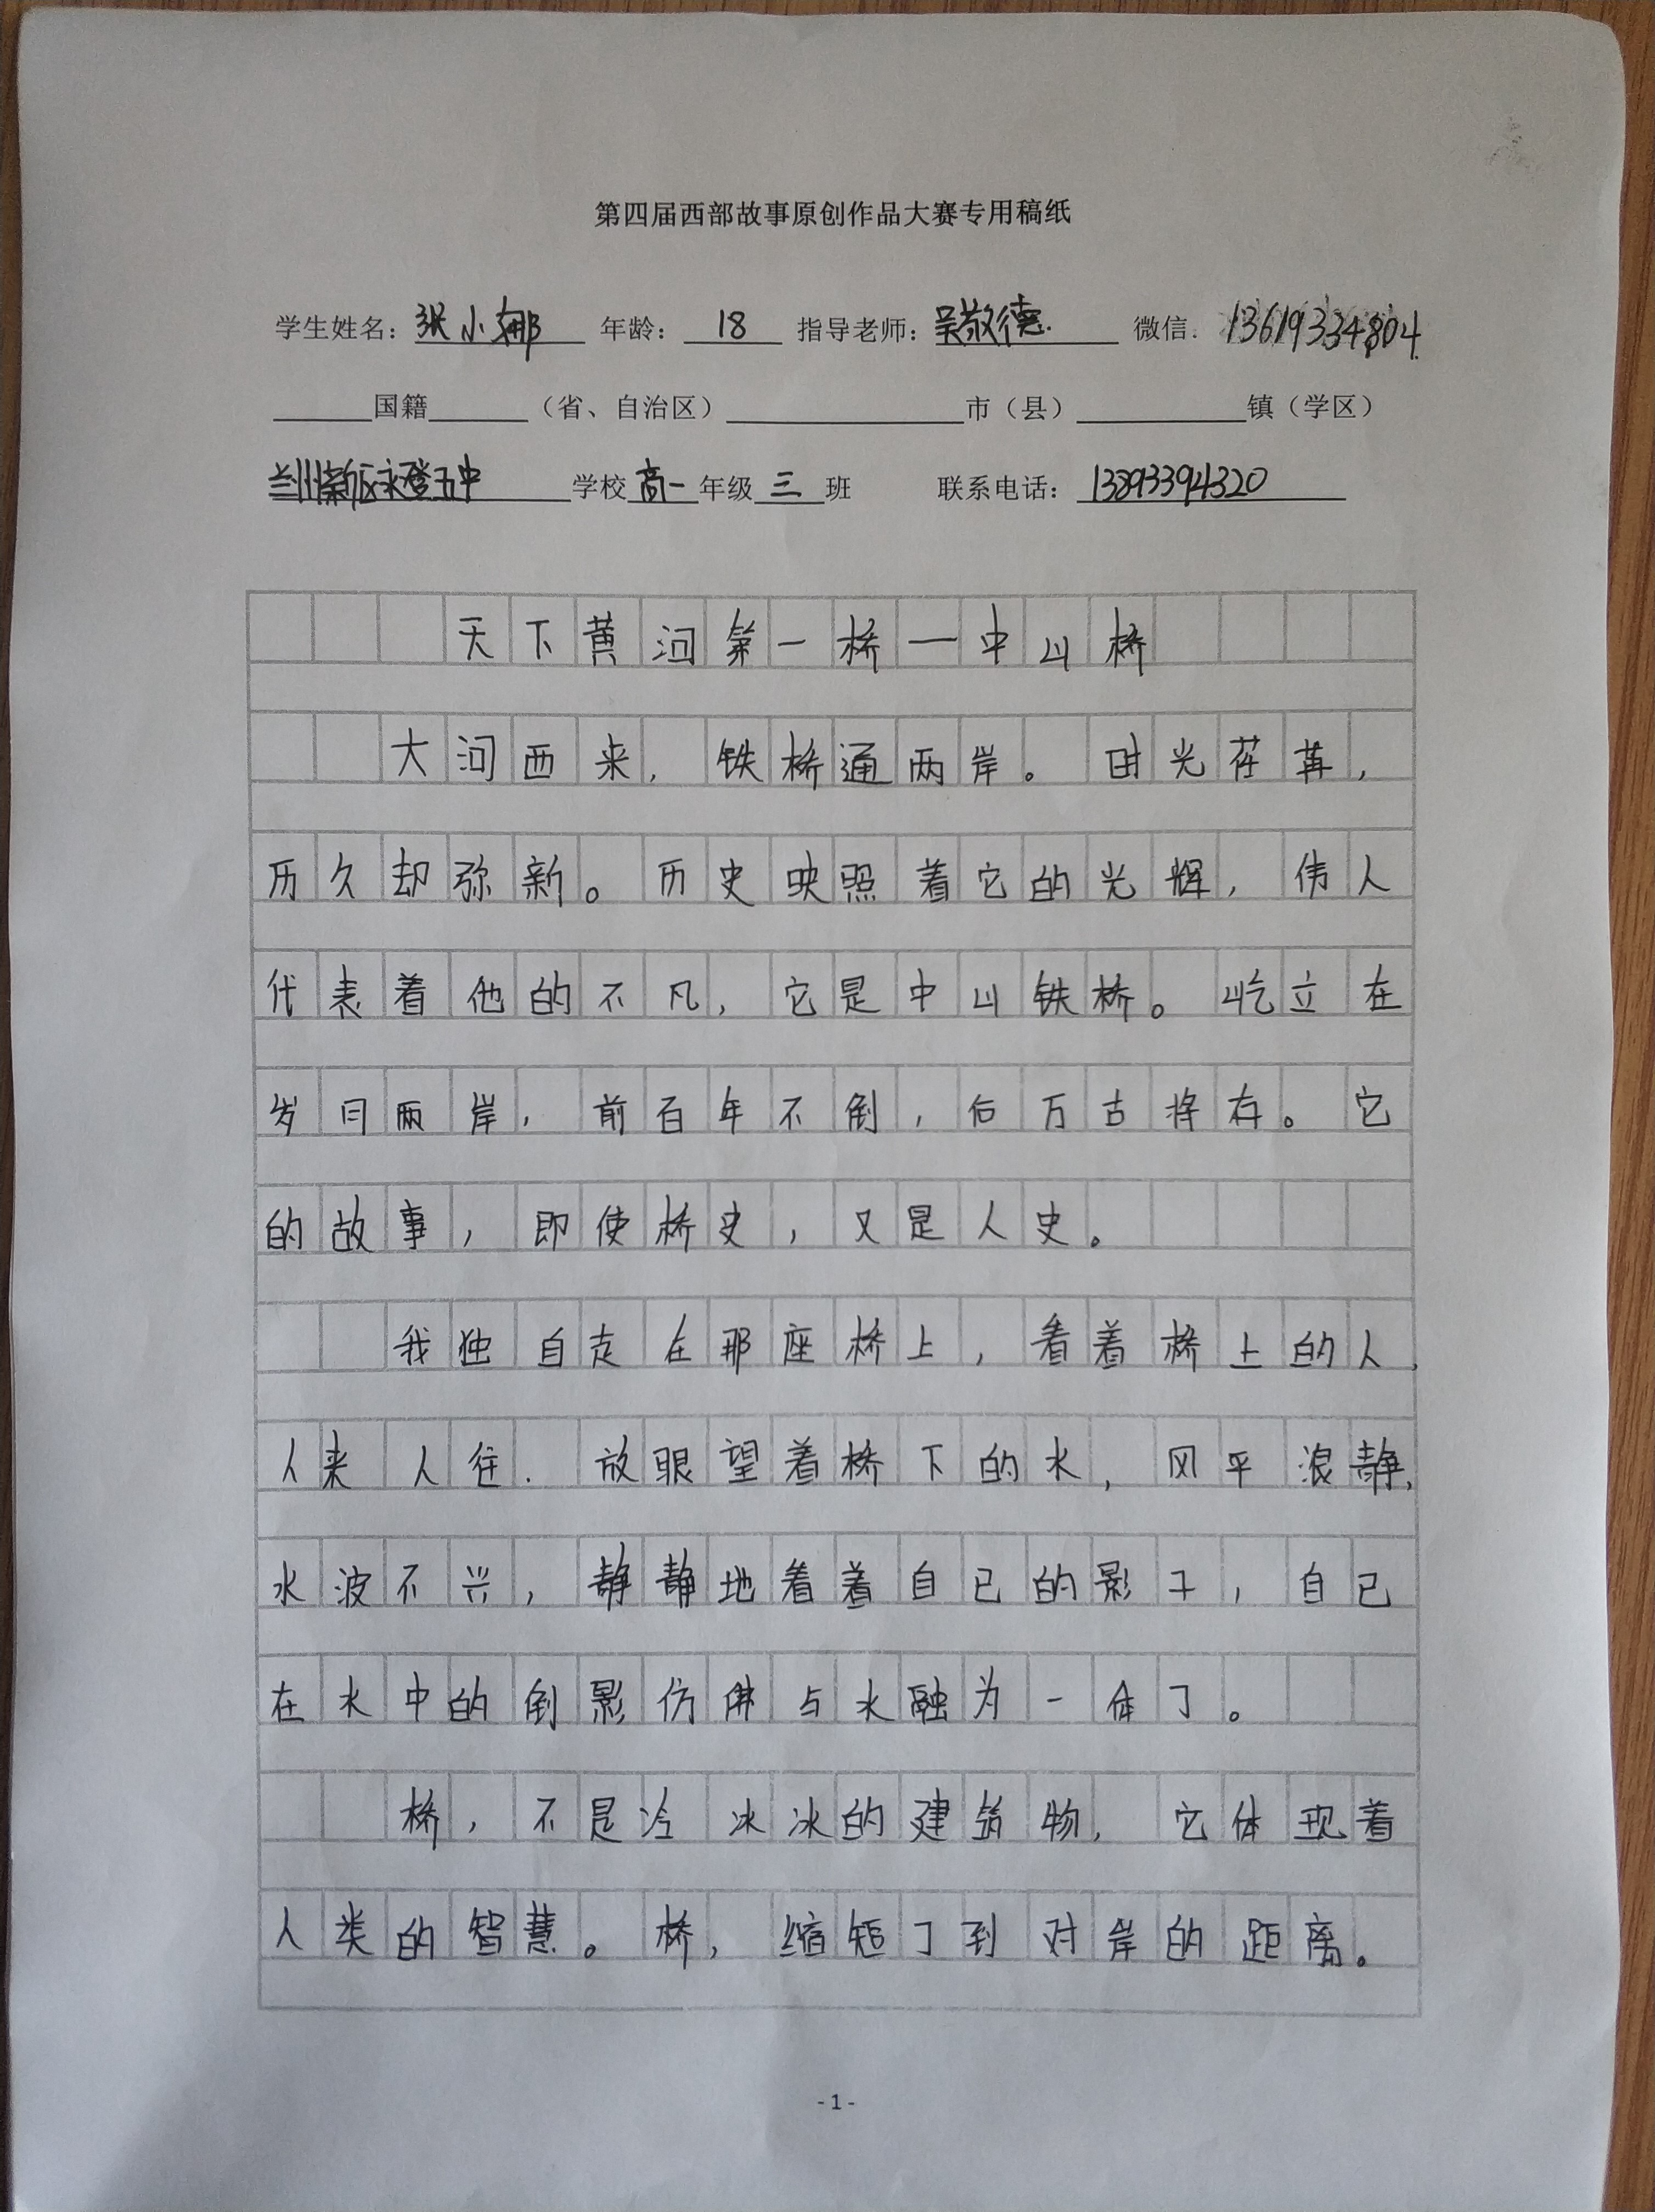 第四届西部故事原创作品大赛专用稿纸
学生姓名：张小娜 年龄：18 指导老师：吴敬德 微信：13619334804
国籍 （省、自治区） 市（县） 镇（学区）
兰州新区永登五中 学校 高一 年级 三 班 联系电话：13893394320
天下黄河第一桥—中山桥
大河西来，铁桥通两岸。时光荏苒，
历久却弥新。历史映照着它的光辉，伟人
代表着他的不凡，它是中山铁桥。屹立在
岁月两岸，前百年不倒，后万古将存。它
的故事，即使桥史，又是人史。
我独自走在那座桥上，看着桥上的人，
人来人往．放眼望着桥下的水，风平浪静，
水波不兴，静静地看着自己的影子，自己
在水中的倒影仿佛与水融为一体了。
桥，不是冷冰冰的建筑物，它体现着
人类的智慧。桥，缩短了到对岸的距离。
-1-